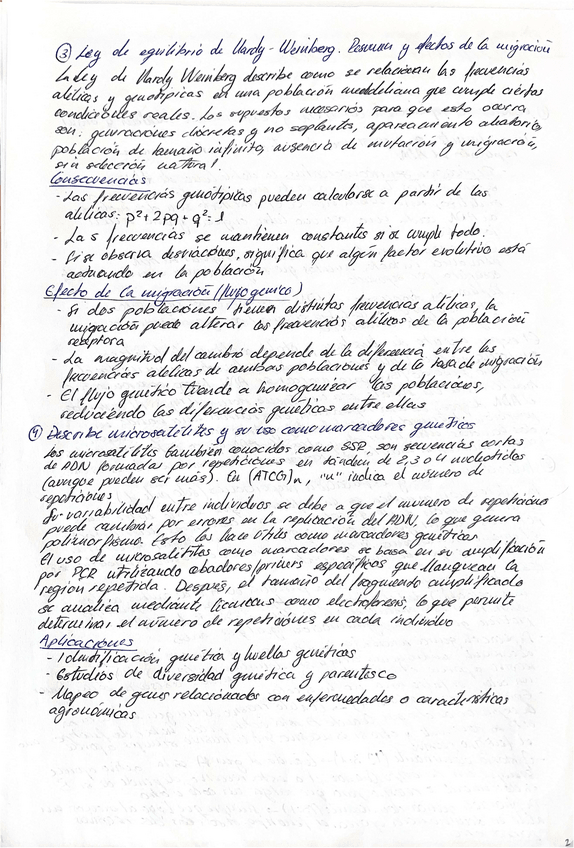 ③ Ley de equilibrio de Hardy-Weinberg. Resumen y efectos de la migración
La ley de Hardy Weinberg describe como se relacionan las frecuencias
alélicas y genotípicas en una población mendeliana que cumple ciertas
condiciones reales. Los supuestos necesarios para que esto ocurra
son: generaciones discretas y no solapantes, apareamiento aleatorio,
población de tamaño infinito, ausencia de mutación y migración,
sin selección natural.
Consecuencias
- Las frecuencias genotípicas pueden calcularse a partir de las
alélicas: p²+2pq+q²=1
- Las frecuencias se mantienen constantes si se cumple todo.
- Si se observa desviaciones, significa que algún factor evolutivo está
actuando en la población
Efecto de la migración (flujo génico)
- Si dos poblaciones tienen distintas frecuencias alélicas, la
migración puede alterar las frecuencias alélicas de la población
receptora
- La magnitud del cambio depende de la diferencia entre las
frecuencias alélicas de ambas poblaciones y de la tasa de migración
- El flujo genético tiende a homogenizar las poblaciones,
reduciendo las diferencias genéticas entre ellas
④ Describe microsatélites y su uso como marcadores genéticos
Los microsatélites también conocidos como SSR, son secuencias cortas
de ADN formadas por repeticiones en tándem de 2, 3 o 4 nucleótidos
(aunque pueden ser más). En (ATCG)n, "n" indica el número de
repeticiones
Su variabilidad entre individuos se debe a que el número de repeticiones
puede cambiar por errores en la replicación del ADN, lo que genera
polimorfismo. Esto los hace útiles como marcadores genéticos
El uso de microsatélites como marcadores se basa en su amplificación
por PCR utilizando cebadores/primers específicos que flanquean la
región repetida. Después, el tamaño del fragmento amplificado
se analiza mediante técnicas como electroforesis, lo que permite
determinar el número de repeticiones en cada individuo
Aplicaciones
- Identificación genética y huellas genéticas
- Estudios de diversidad genética y parentesco
- Mapeo de genes relacionados con enfermedades o características
agronómicas
2